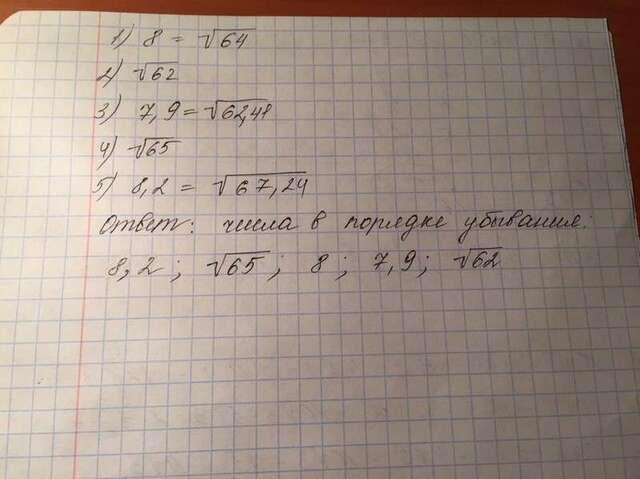 1) 8 = √64
2) √62
3) 7,9 = √62,41
4) √65
5) 8,2 = √67,24
Ответ: числа в порядке убывания:
8,2 ; √65 ; 8 ; 7,9 ; √62